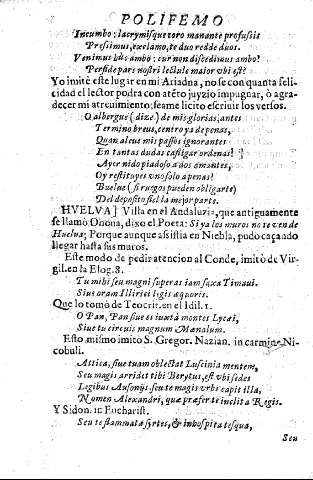 POLIFEMO
Incumbo: lacrymisque toro manante profusis
Pressimus, exclamo, te duo redde duos.
Venimus huc ambo: cur non discedimus ambo?
Perfide pars nostri lectule maior ubi est?
Yo imitè este lugar en mi Ariadna, no se con quanta feli-
cidad el lector podrà con atẽto juyzio impugnar, ò agra-
decer mi atreuimiento; seame licito escriuir los versos.
O albergue (dize) de mis glorias, antes
Termino breue, centro ya de penas,
Quan aleue mis passos ignorantes
En tantas dudas castigar ordenas!
Ayer nido piadoso a dos amantes,
Oy restituyes vno solo apenas!
Buelue (si ruegos pueden obligarte)
Del deposito fiel la mejor parte.
HUELVA] Villa en el Andaluzia, que antiguamente
se llamò Onoua, dixo el Poeta: Si ya los muros no te ven de
Huelua; Porque aunque assistia en Niebla, pudo caçando
llegar hasta sus muros.
Este modo de pedir atencion al Conde, imitò de Vir-
gil. en la Elog. 8.
Tu mihi seu magni superas iam saxa Timaui.
Siue oram Illirici legis æquoris.
Que lo tomò de Teocrit. en el Idil. 1.
O Pan, Pan siue es iuxtà montes Lycæi,
Siue tu circuis magnum Mænalum.
Esto mismo imitò S. Gregor. Nazian. in carmine Ni-
cobuli.
Attica, siue tuam oblectat Luscinia mentem,
Seu magis arridet tibi Berytus, est vbi sedes
Legibus Ausonijs. seu te magis vrbs capit illa,
Nomen Alexandri, quæ præfert inclita Regis.
Y Sidon. in Eucharist.
Seu te flammatæ syrtes, & inhospita tesqua,
Seu